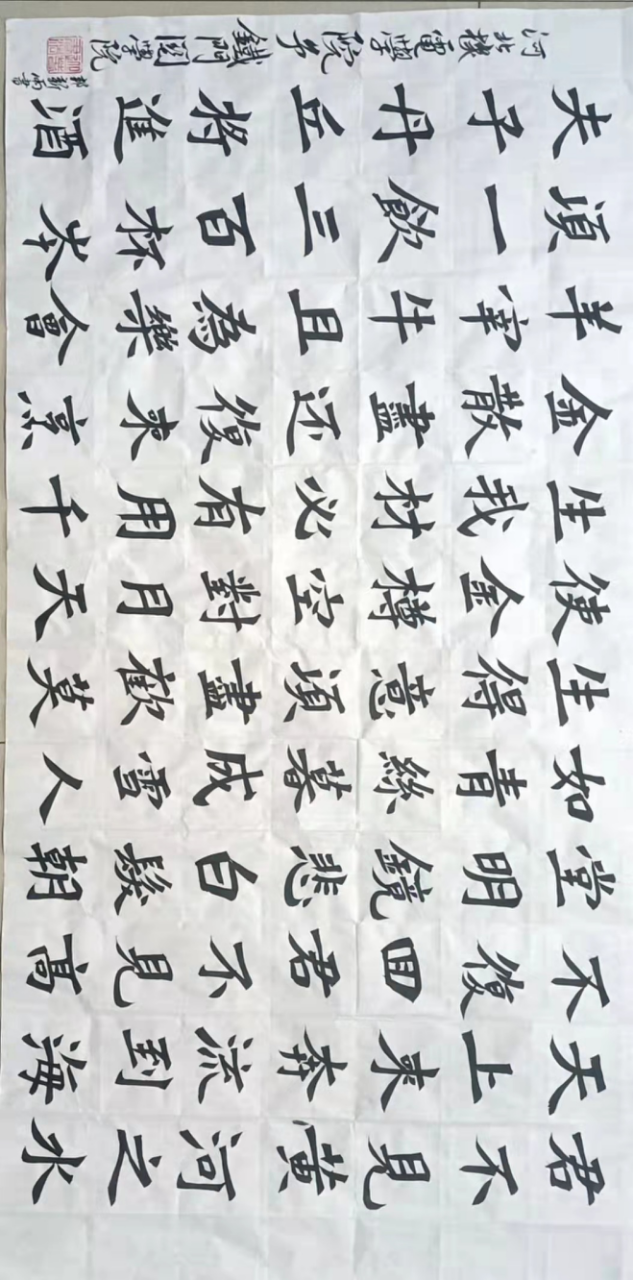 君不見黃河之水
天上來奔流到海
不復回君不見高
堂明鏡悲白髮朝
如青絲暮成雪人
生得意須盡歡莫
使金樽空對月天
生我材必有用千
金散盡还復來烹
羊宰牛且為樂會
須一飲三百杯岑
夫子丹丘將進酒
河北機電學院 鐵門関學院